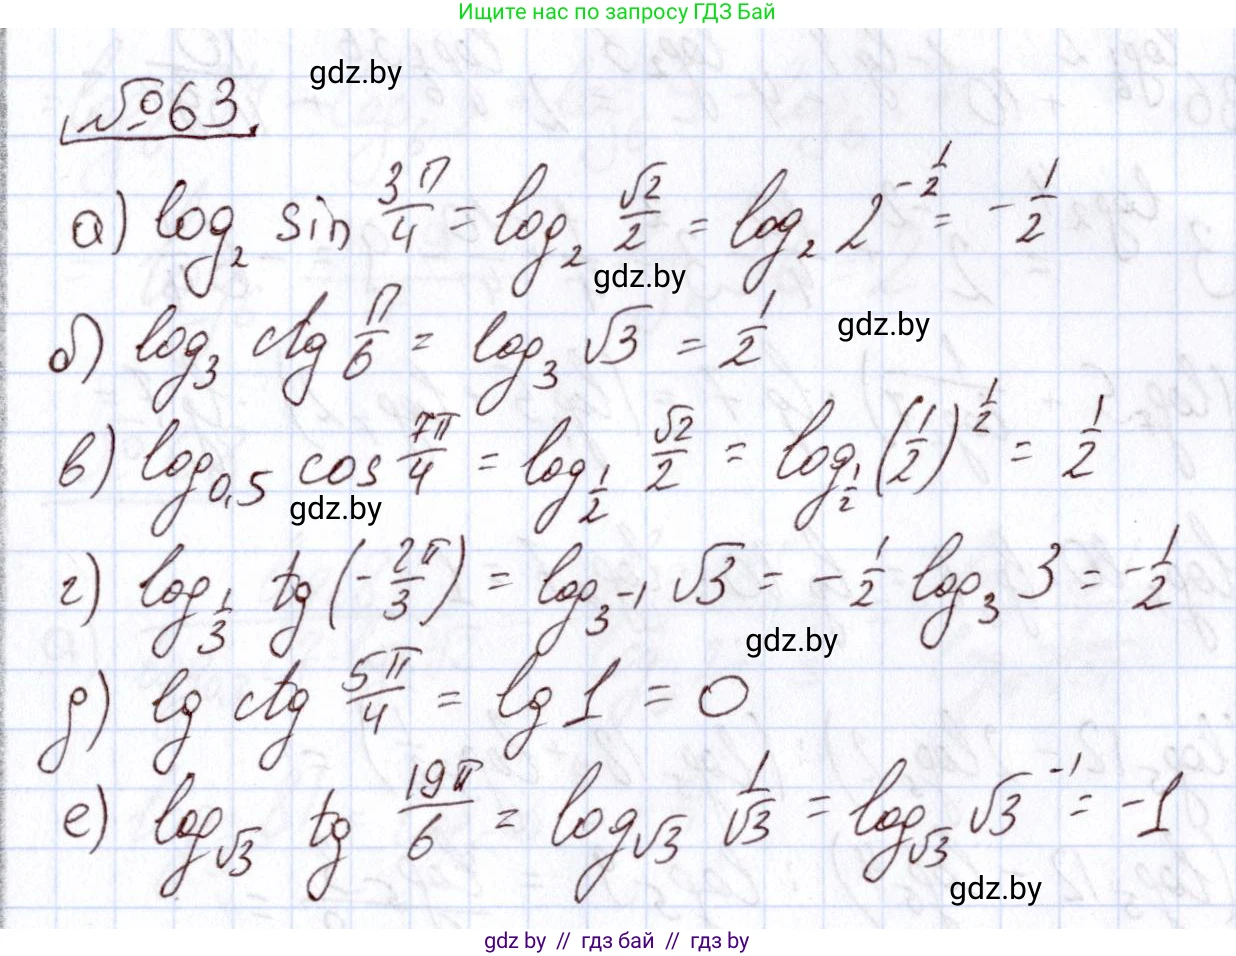 Ищите нас по запросу ГДЗ Бай
gdz.by
№63
а) log₂ sin 3π/4 = log₂ √2/2 = log₂ 2^(-1/2) = -1/2
gdz.by
б) log₃ ctg π/6 = log₃ √3 = 1/2
gdz.by
в) log₀,₅ cos 7π/4 = log_(1/2) √2/2 = log_(1/2) (1/2)^(1/2) = 1/2
gdz.by
г) log_(1/3) tg(-2π/3) = log_(3^-1) √3 = -1/2 log₃ 3 = -1/2
gdz.by
д) lg ctg 5π/4 = lg 1 = 0
е) log_√3 tg 19π/6 = log_√3 1/√3 = log_√3 √3^(-1) = -1
gdz.by
gdz by // гдз бай // гдз by